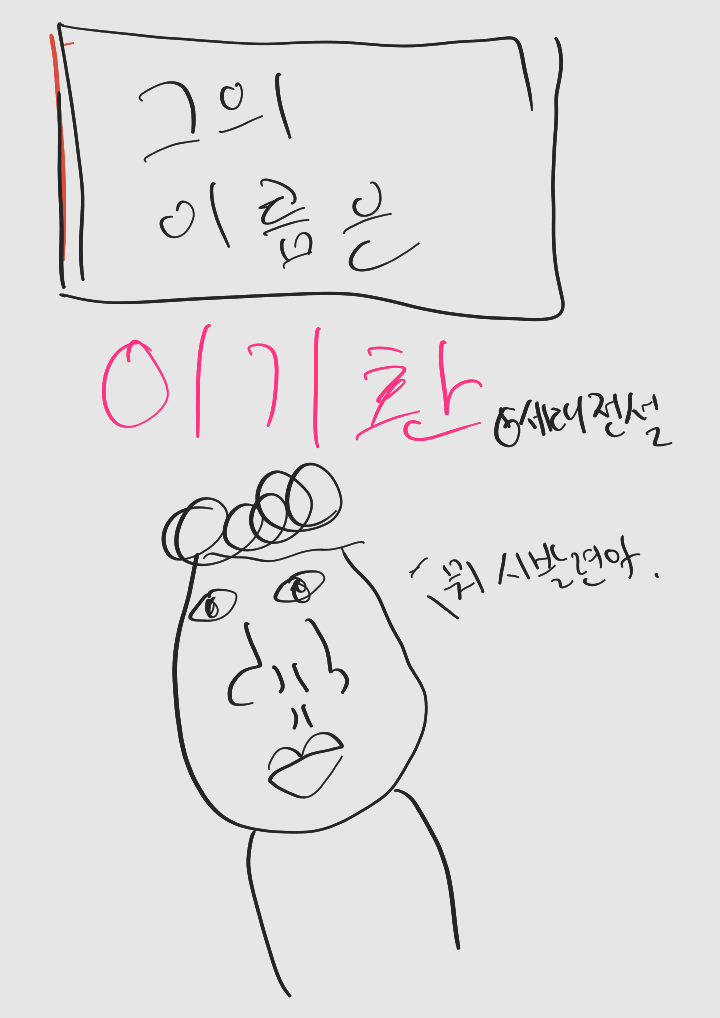 그의
이름은
이기환
5세대전설
뭐 시발련아.